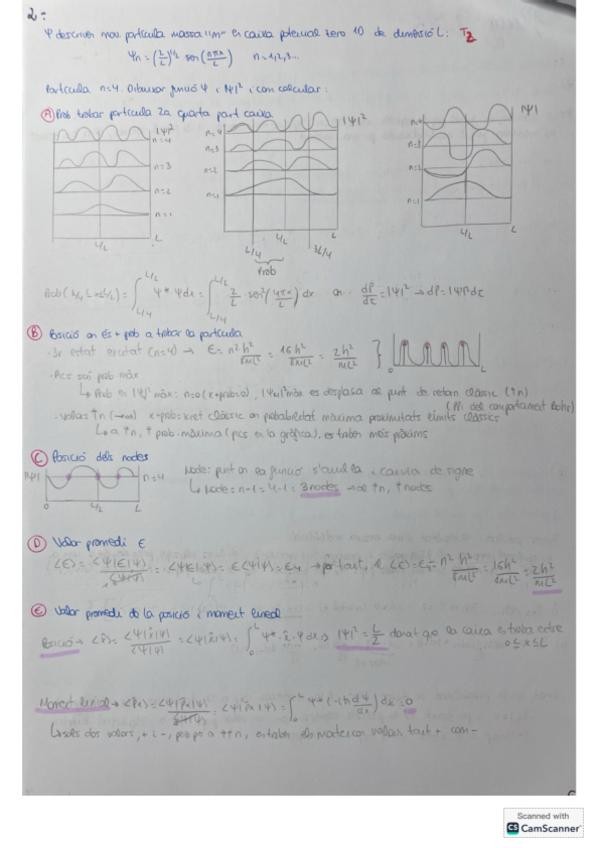 2:
Ψ descriu mov. partícula massa "m" en caixa potencial zero 1D de dimensió L: T2
Ψn = (2/L)^1/2 sen(nπx/L)   n = 1, 2, 3...
Partícula n=4. Dibuixar funció Ψ i |Ψ|² i com calcular:
A Prob trobar partícula 2a quarta part caixa
|Ψ|² n=4 n=3 n=2 n=1 L/2 L
n=4 n=3 n=2 n=1 |Ψ|² L/4 L/2 3L/4 L
Prob
n=4 n=3 n=2 n=1 |Ψ| L/2 L
Prob(L/4 ≤ x ≤ L/2) = ∫ Ψ* Ψ dx = ∫ 2/L · sen²(4πx/L) dx   on dP/dτ = |Ψ|² → dP = |Ψ|² dτ
B Posició on és + prob a trobar la partícula
- 3r estat excitat (n=4) → E = n²h²/8mL² = 16h²/8mL² = 2h²/mL² } 0 L
- Pics són prob màx
↳ Prob en |Ψ|² màx: n=0 (x+prob=0), |Ψn|² màx es desplaça al punt de retorn clàssic (↑n)
- Valors ↑n (→∞) clàssic on probabilitat màxima proximitats límits clàssics (Ppi del comportament Bohr)
↳ a ↑n, ↑ prob. màxima (pics en la gràfica), es troben més pròxims
C Posició dels nodes
|Ψ| n=4 0 L/2 L
Node: punt on la funció s'anul·la i canvia de signe
↳ Node = n-1 = 4-1 = 3 nodes → ↑n, ↑nodes
D Valor promedi E
⟨E⟩ = ⟨Ψ|E|Ψ⟩/⟨Ψ|Ψ⟩ = ⟨Ψ|E|Ψ⟩ = E⟨Ψ|Ψ⟩ = E4 → per tant, el ⟨E⟩ = E4 = n² h²/8mL² = 16h²/8mL² = 2h²/mL²
E Valor promedi de la posició i moment lineal
Posició → ⟨x̂⟩ = ⟨Ψ|x̂|Ψ⟩/⟨Ψ|Ψ⟩ = ⟨Ψ|x̂|Ψ⟩ = ∫ Ψ* · x̂ · Ψ dx → |Ψ|² = L/2 donat que la caixa es troba entre
0 ≤ x ≤ L
Moment lineal → ⟨Px⟩ = ⟨Ψ|P̂x|Ψ⟩/⟨Ψ|Ψ⟩ = ⟨Ψ|P̂x|Ψ⟩ = ∫ Ψ* (-iħ dΨ/dx) dx = 0
↳ dos valors, + i -, però a ↑↑n, es troben els mateixos valors tant + com -
Scanned with
CS CamScanner